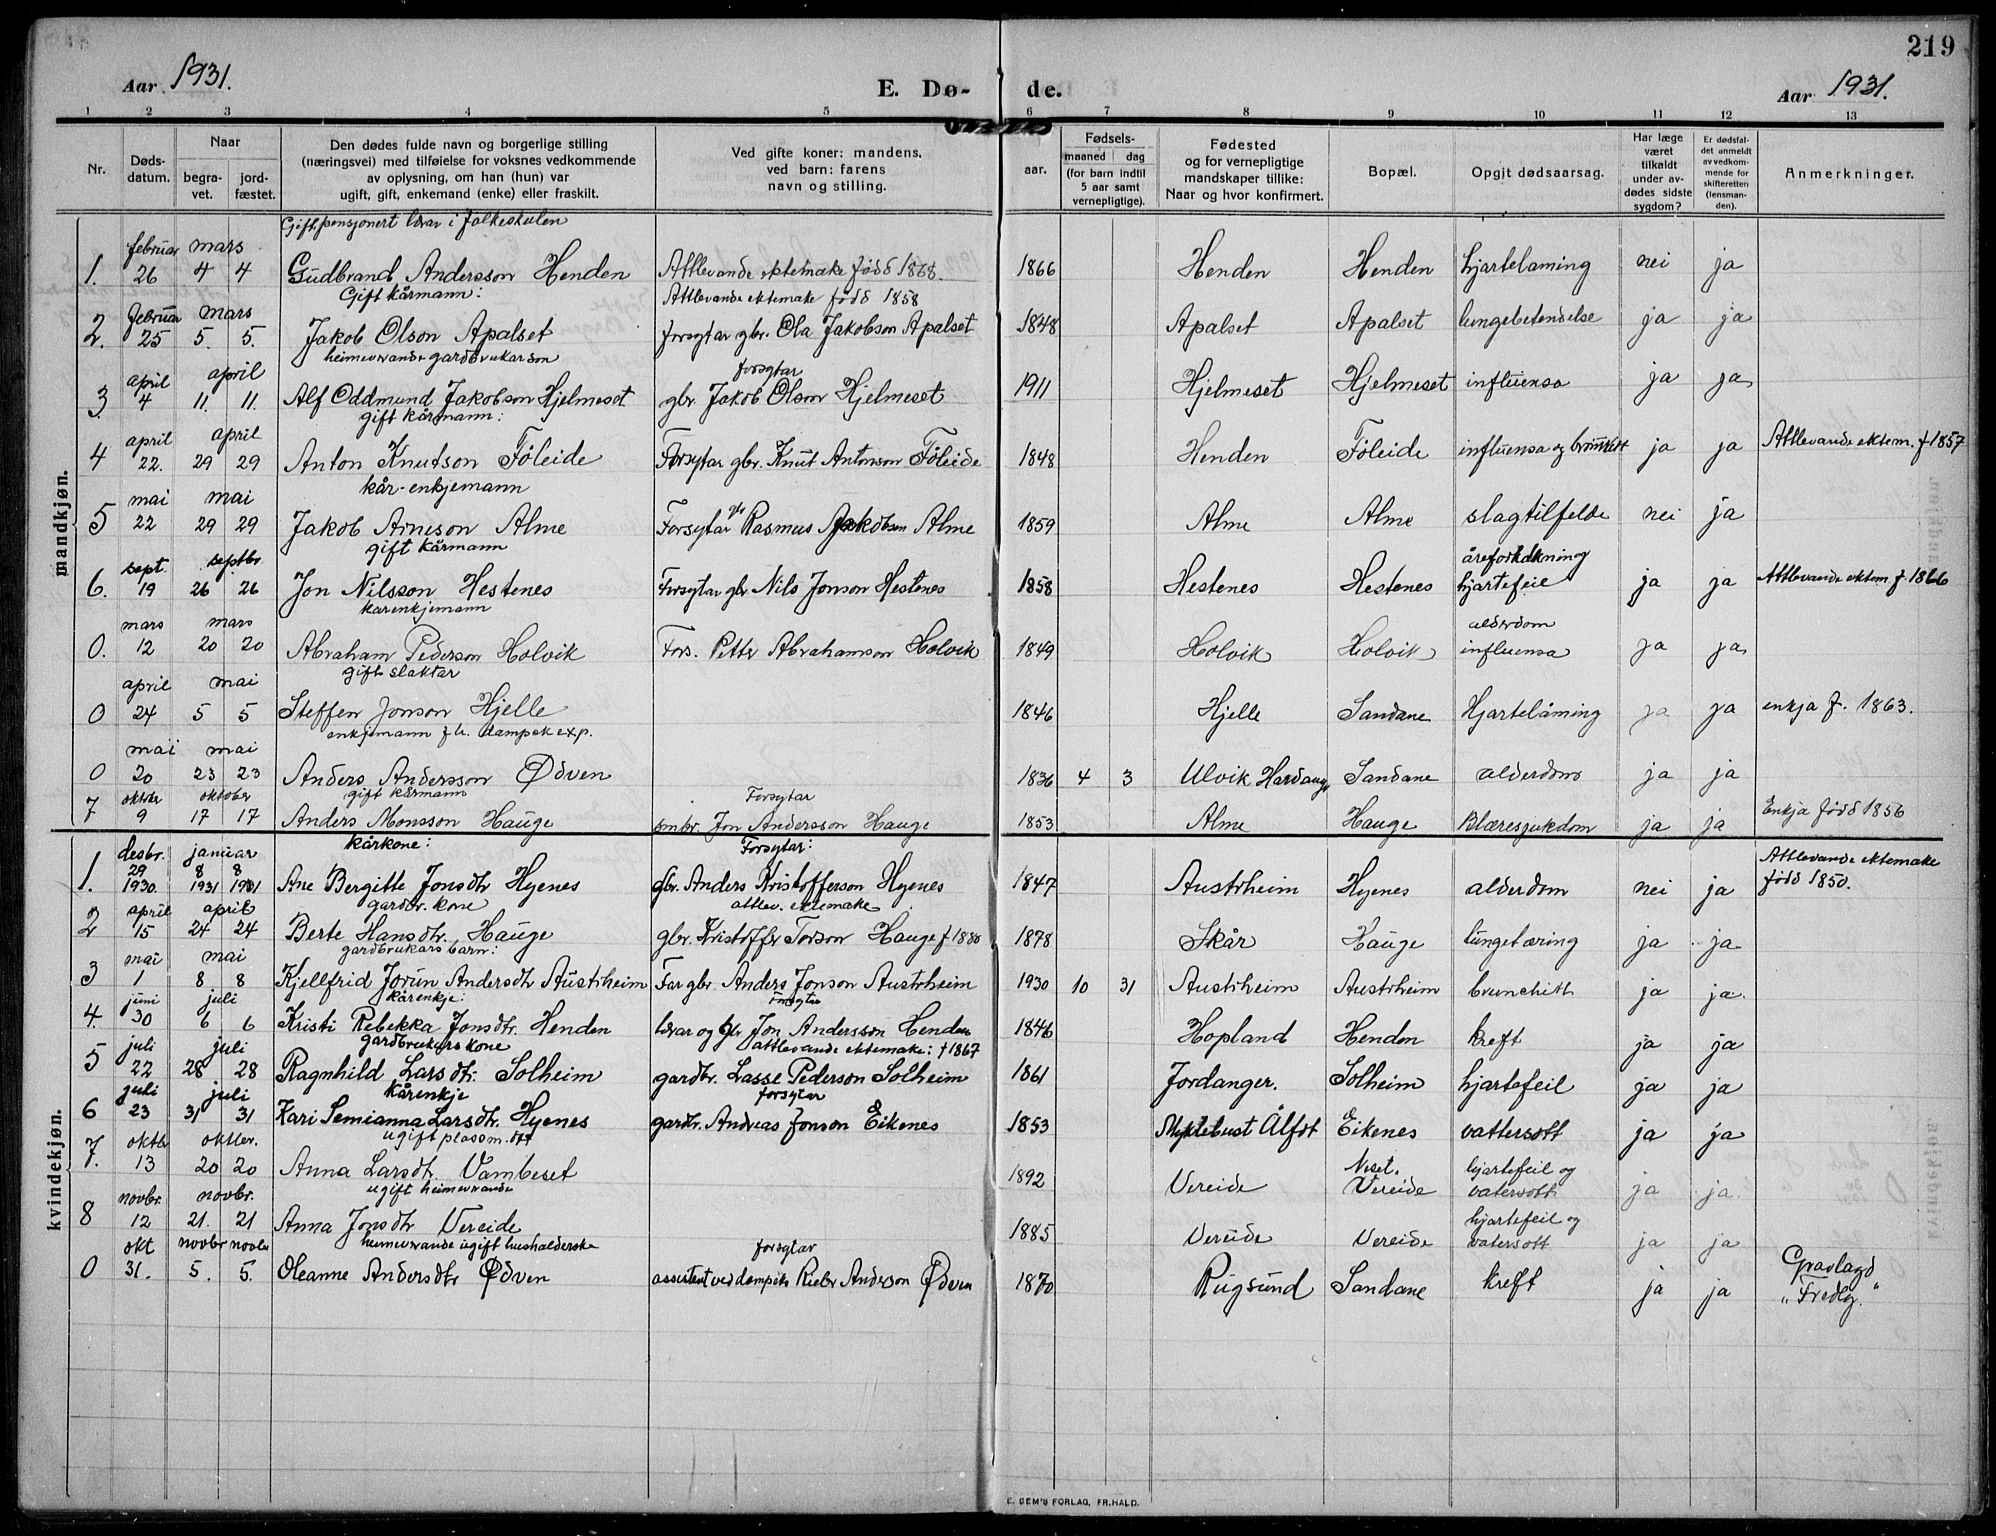 219
Aar 1931. E. Dø- de. Aar 1931.
1 2 3 4 5 6 7 8 9 10 11 12 13
Nr. Døds-datum. Naar begra-vet. jord-fæstet. Den dødes fulde navn og borgerlige stilling (næringsvei) med tilføielse for voksnes vedkommende av oplysning, om han (hun) var ugift, gift, enkemand (enke) eller fraskilt. Ved gifte koner: mandens, ved barn: farens navn og stilling. aar. Fødsels- maaned dag (for barn indtil 5 aar samt vernepligtige). Fødested og for vernepligtige mandskaper tillike: Naar og hvor konfirmert. Bopæl. Opgit dødsaarsag. Har læge været tilkaldt under av-dødes sidste sygdom? Er dødsfal-det anmeldt av vedkom-mende for skifteretten (lensman-den). Anmerkninger.
mandkjøn.
Gift, pensjonert lærar i folkeskulen
februar mars
1. 26 4 4 Gudbrand Andersson Henden Attlevande ektemake fødd 1868. 1866 Henden Henden hjartelaming nei ja
Gift kårmann: Attlevande ektemake fødd 1858
februar mars
2. 25 5. 5. Jakob Olson Apalset forsytar gbr. Ola Jakobson Apalset 1848 Apalset Apalset lungebetendelse ja ja
heimeverande gardbrukarson forsytar
april april
3. 4 11. 11. Alf Oddmund Jakobson Hjelmeset gbr. Jakob Olson Hjelmeset 1911 Hjelmeset Hjelmeset influensa ja ja
gift kårmann:
april april
4 22. 29 29 Anton Knutson Föleide Forsytar gbr. Knut Antonson Föleide 1848 Henden Föleide influensa og bronkitt ja ja Attlevande ektem. f 1857
kår-enkjemann
mai mai
5 22 29 29 Jakob Arneson Alme Forsytar gbr Rasmus Jakobsen Alme 1859 Alme Alme slagtilfelde nei ja
gift kårmann
sept. septbr åreforkalkning
6. 19 26 26 Jon Nilsson Hestenes Forsytar gbr. Nils Jonson Hestenes 1858 Hestenes Hestenes hjartefeil ja ja Attlevande ektem f. 1866
kårenkjemann
mars mars alderdom
0. 12 20 20 Abraham Pederson Holvik Fors. Petter Abrahamson Holvik 1849 Holvik Holvik influensa ja ja
gift slaktar
april mai
0 24 5 5 Steffen Jonson Hjelle 1846 Hjelle Sandane Hjartelåming ja ja enkja f. 1863.
enkjemann fh. dampsk exp.
mai mai
0 20 23 23 Anders Andersson Ødven 1836 4 3 Ulvik Hardang. Sandane alderdom ja ja
gift kårmann Forsytar
oktober oktober
7 9 17 17 Anders Monsson Hauge smbr. Jon Andersson Hauge 1853 Alme Hauge Blæresjukdom ja ja Enkja fødd 1856
kvindekjøn.
kårkone: Forsytar:
desbr. januar
1. 29 1930. 8 1931 8 1931 Ane Bergitte Jonsdtr Hyenes gbr. Anders Kristofferson Hyenes 1847 Austrheim Hyenes alderdom nei ja Attlevande ektemake fødd 1850.
gardbr. kone attlev. ektemake
april april
2 15 24 24 Berte Hansdtr. Hauge gbr. Kristoffer Torson Hauge f 1880 1878 Skår Hauge lungetæring ja ja
gardbrukars barn:
mai mai
3 1 8 8 Kjellfrid Jorun Andersdtr Austrheim Far gbr. Anders Jonson Austrheim 1930 10 31 Austrheim Austrheim brunchitt ja ja.
kårenkje: Forsytar
juni juli
4. 30 6 6 Kristi Rebekka Jonsdtr. Henden lærar og gbr Jon Andersson Henden 1846 Hopland Henden kreft ja ja
gardbrukars kone attlevande ektemake: f 1867
juli juli
5 22 28 28 Ragnhild Larsdtr. Solheim gardbr. Lasse Pederson Solheim 1861 Jordanger. Solheim hjartefeil ja ja
kårenkje forsytar
juli juli
6 23 31 31 Kari Semianna Larsdtr. Hyenes gardbr. Andreas Jonson Eikenes 1853 Myklebust Ålfot Eikenes vattersott ja ja
ugift plassm. dtr
oktbr oktbr.
7. 13 20 20 Anna Larsdtr. Vambeset 1892 Vereide Neset. Vereide hjartefeil og vatersott ja ja.
ugift heimeverande
novbr. novbr.
8 12 21. 21 Anna Jonsdtr Vereide 1885 Vereide Vereide hjartefeil og vatersott ja ja
heimeverande ugift hushalderske forsytar
okt novbr novbr
0 31. 5. 5. Oleanne Andersdtr Ødven assistent ved dampsk Rieber Anderson Ødven 1870 Rugsund Sandane kreft ja ja Gravlagd "Fredbg."
E. SEM'S FORLAG, FR.HALD.